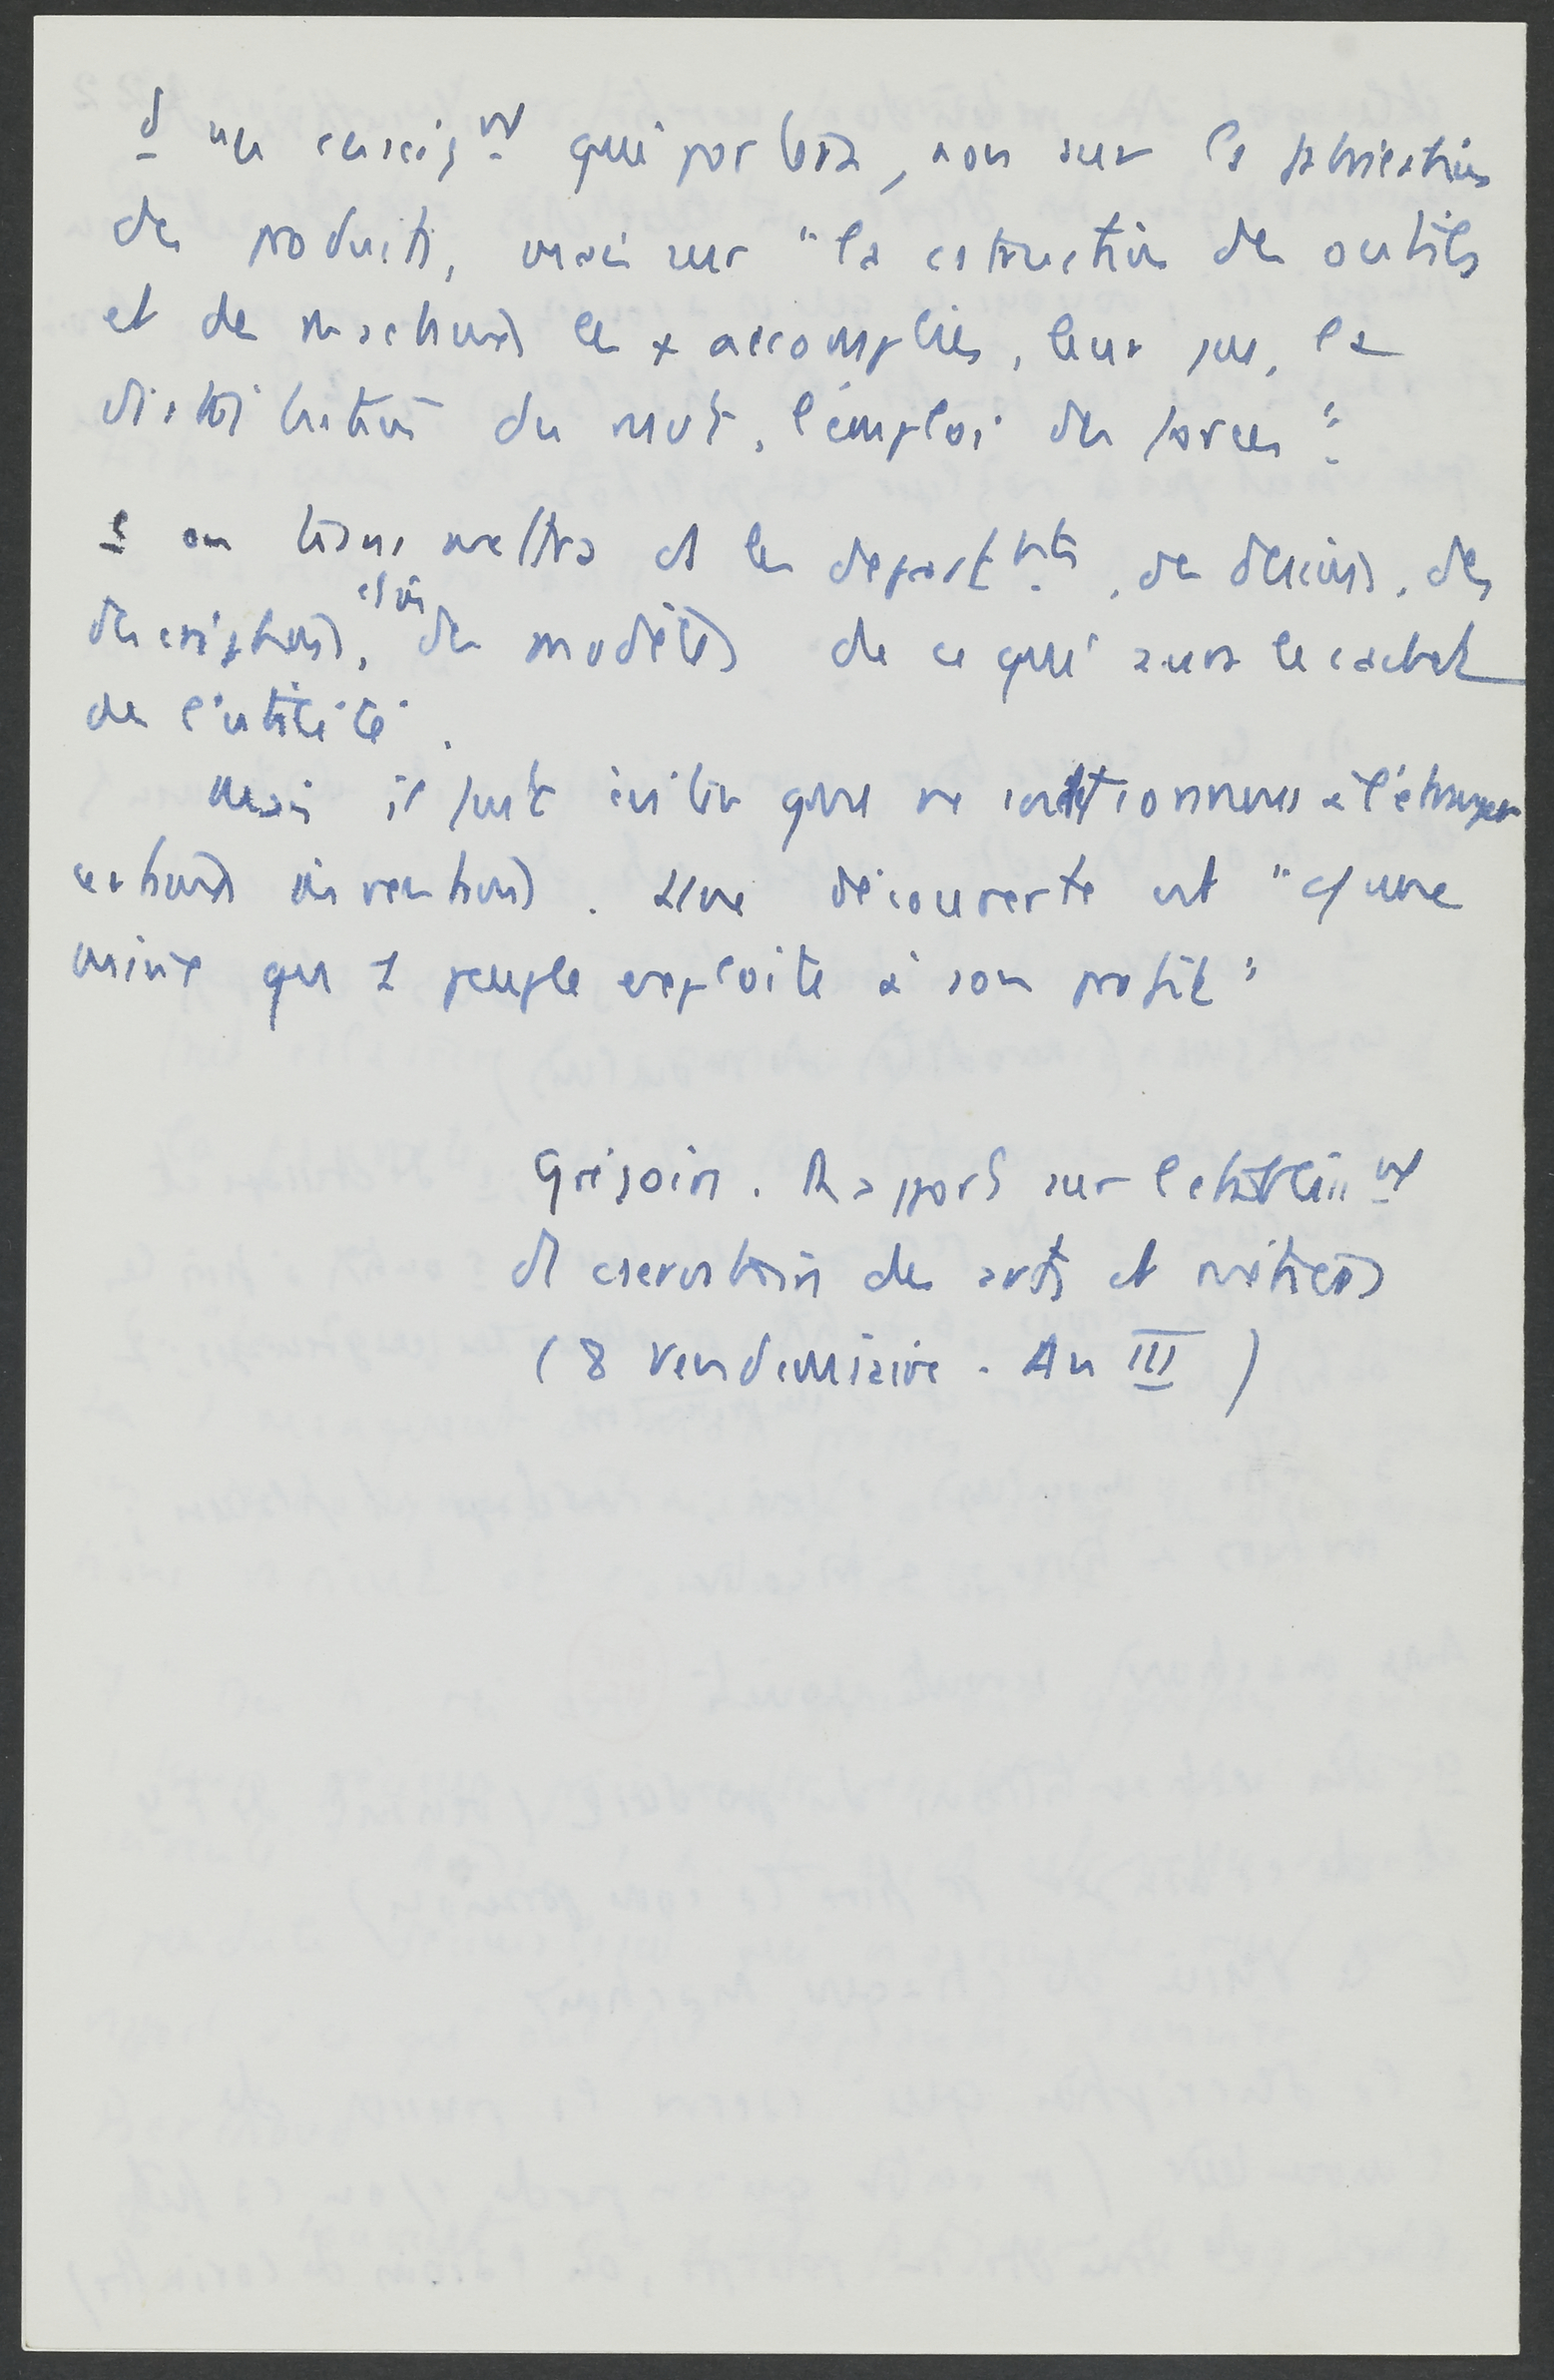 d un enseig nt qui portera, non sur la fabrication
des produits, mais sur "la cstruction des outils
et des machines les + accomplies, leur jeu, la
distribution du mvt, l'emploi des forces"
e on transmettra ds les départ nts, des dessins, des
descriptions, des modèles de ce qui aura le cachet
de l'utilité.
Mais il faut éviter que ne soit à l'étranger
inventions. Une découverte est "c/ une
mine qu 1 peuple exploite à son profit"
Grégoire. Rapport sur l'établiss nt
d cservatoire des arts et métiers
(8 Vendémiaire. An III)